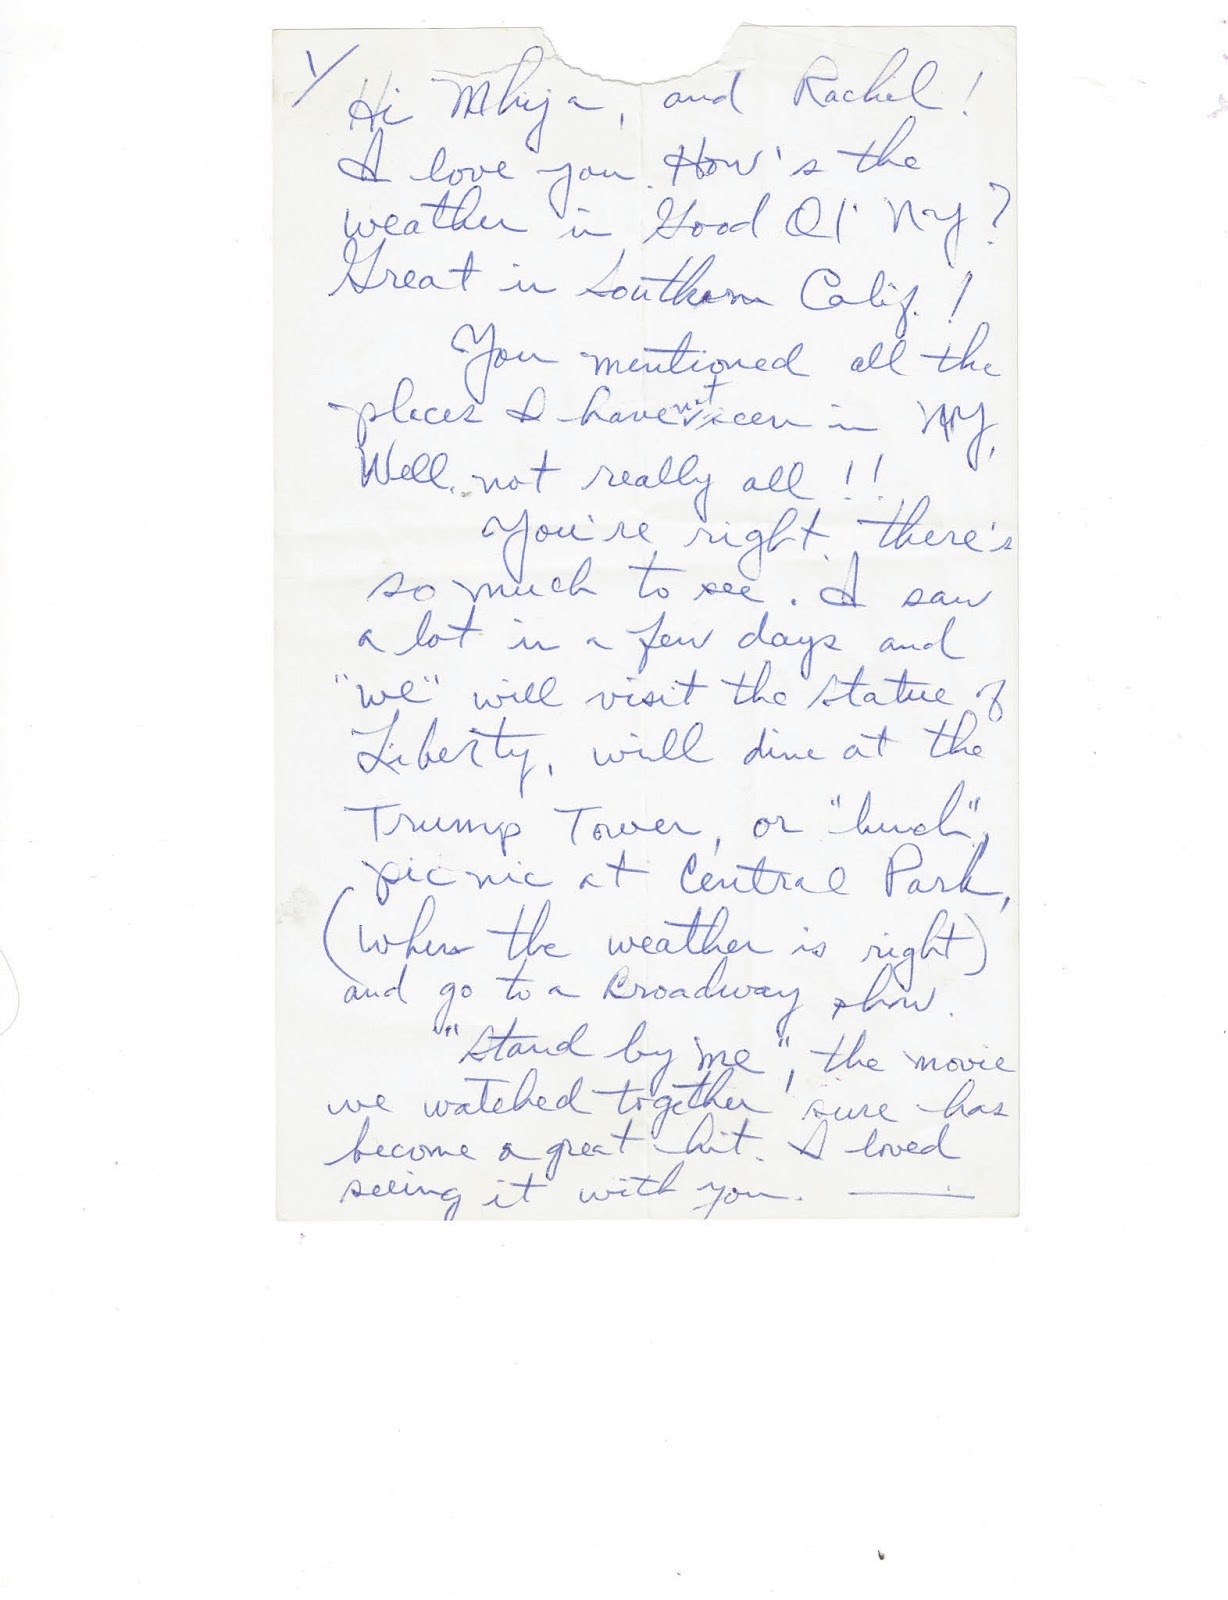 1/
Hi Mhija, and Rachel!
I love you. How's the
weather in Good Ol' NY?
Great in Southern Calif.!
You mentioned all the
places I have not seen in NY,
Well, not really all!!
You're right, there's
so much to see. I saw
a lot in a few days and
"we" will visit the Statue of
Liberty, will dine at the
Trump Tower, or "lunch",
picnic at Central Park,
(when the weather is right)
and go to a Broadway show.
"Stand by me", the movie
we watched together sure has
become a great hit. I loved
seeing it with you.